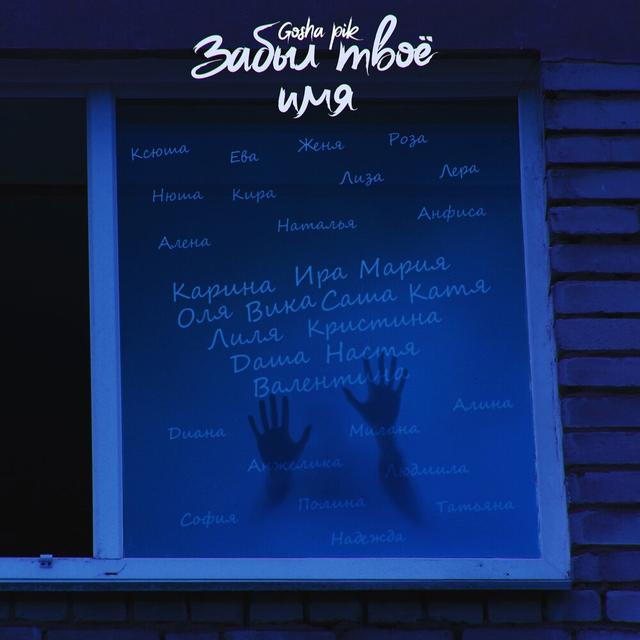 Gosha pik
Забыл твоё
имя
Ксюша Ева Женя Роза
Лиза Лера
Нюша Кира
Наталья Анфиса
Алена
Карина Ира Мария
Оля Вика Саша Катя
Лиля Кристина
Даша Настя
Валентина
Алина
Диана Милана
Анжелика Людмила
София Полина Татьяна
Надежда